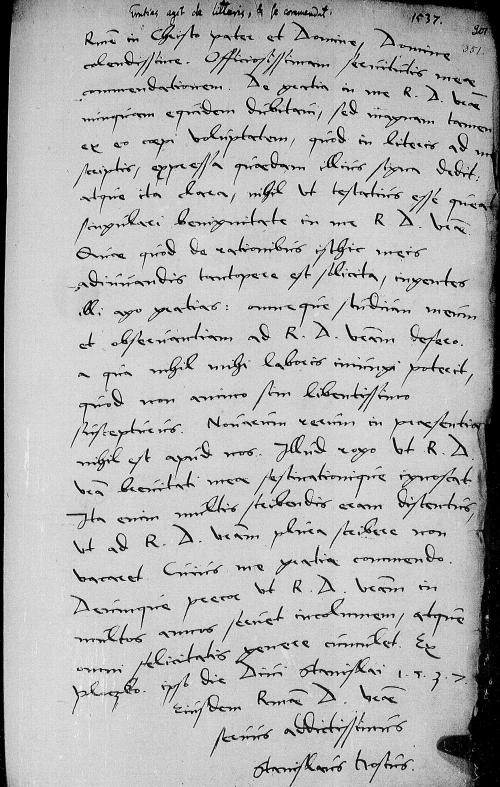 Gratias agit de litteris, & se commendat. 1537.
351.
Rme in Christo pater et Domine, Domine
colendissime. Officiosissimam servitutis meae
commendationem. De gratia in me R. D. vrae
nunquam equidem dubitavi, sed magnam tamen
ex eo coepi voluptatem, quod in literis ad me
scriptis, expressa quaedam illius signa dedit:
atque ita clara, nihil ut testatius esse queat
singulari benignitate in me R D. vrae
Quae quod de rationibus isthic meis
adiuvandis tantopere est solicita, ingentes
illi ago gratias: omneque studium meum
et observantiam ad R. D. vram defero.
a qua nihil mihi laboris iniungi poterit,
quod non animo sim libentissimo
suscepturus. Novarum rerum in praesentia
nihil est apud nos. Illud rogo ut R. D
vra brevitati meae festinationique ignoscat
Ita enim multis scribendis eram distentus,
ut ad R. D. vram plura scribere non
vacaret. Cuius me gratiae commendo.
Deumque precor ut R. D. vram in
multos annos servet incolumem, atque
omni felicitatis genere cumulet. Ex
pluczko. ipso die Divi Stanislai 1.5.3.7
Eiusdem Rmae D. vrae
servus addictissimus
Stanislaus Hosius.